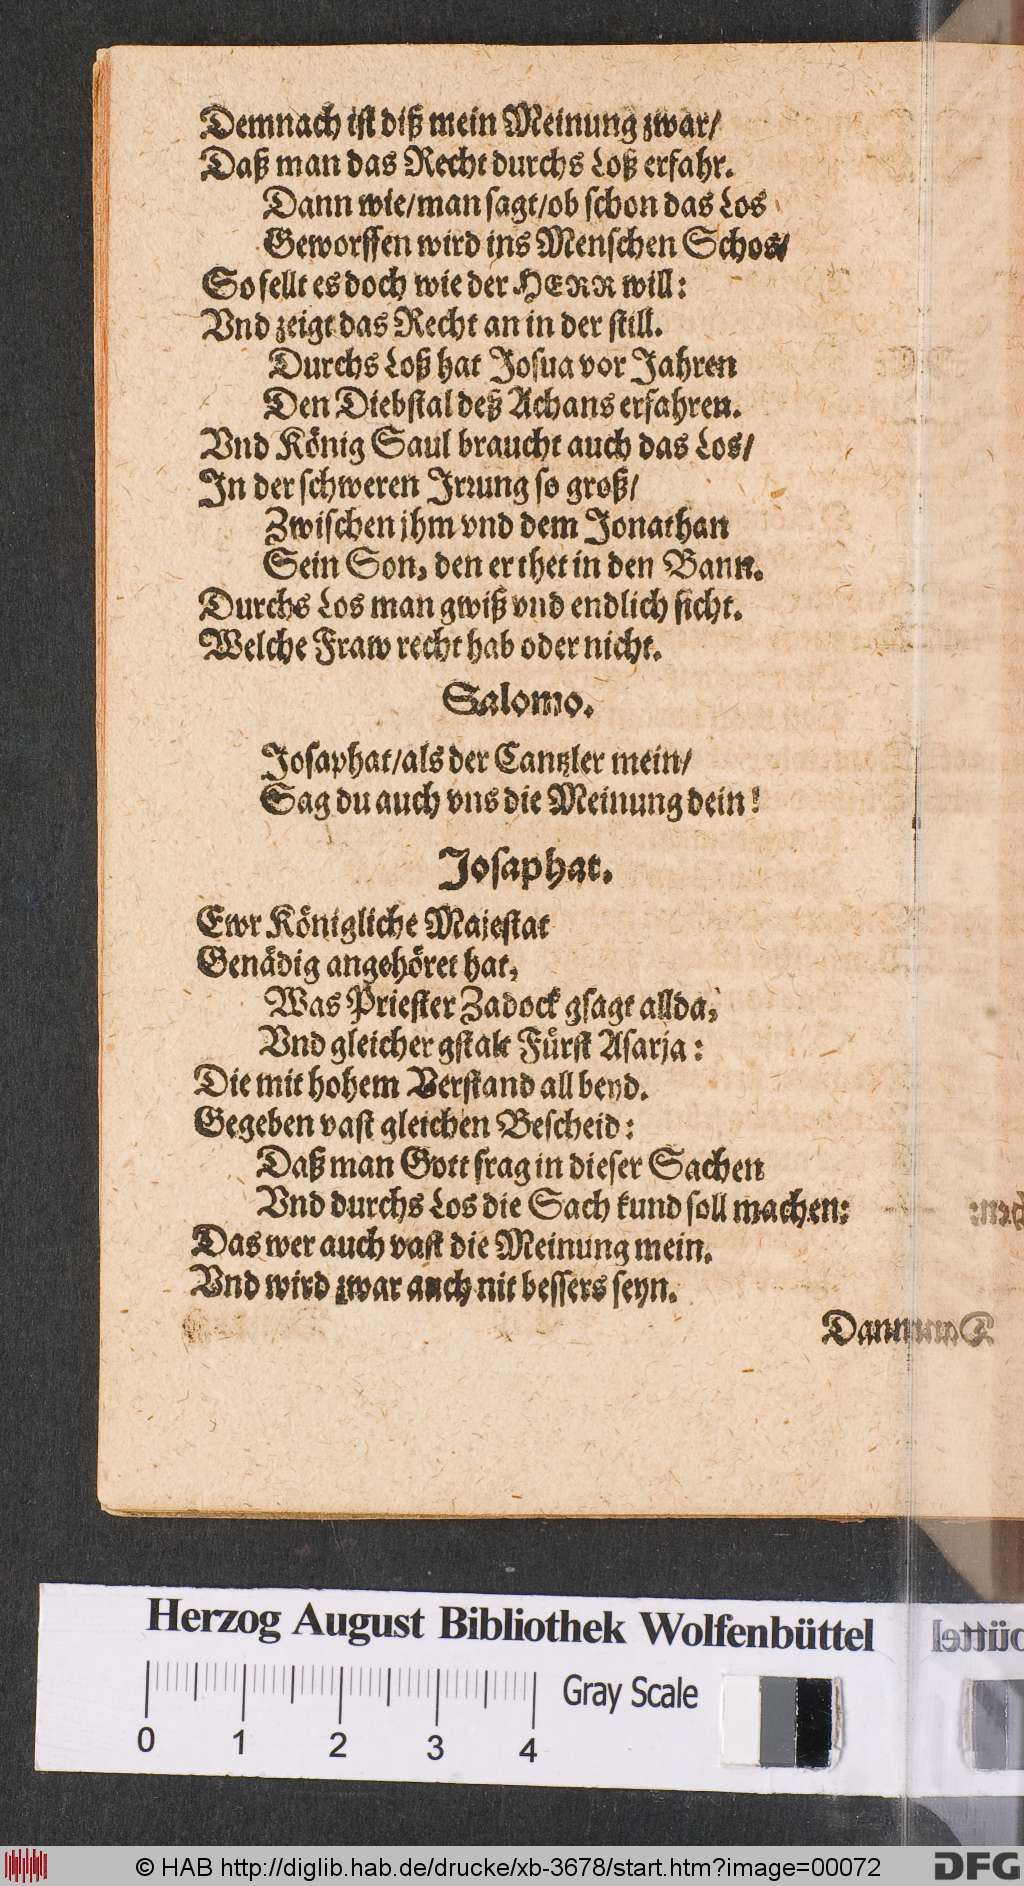 Demnach ist diß mein Meinung zwar/
Daß man das Recht durchs Loß erfahr.
Dann wie/man sagt/ob schon das Los
Geworffen wird ins Menschen Schos/
So fellt es doch wie der HERR will:
Vnd zeigt das Recht an in der still.
Durchs Loß hat Josua vor Jahren
Den Diebstal deß Achans erfahren.
Vnd König Saul braucht auch das Los/
In der schweren Irrung so groß/
Zwischen jhm vnd dem Jonathan
Sein Son, den er thet in den Bann.
Durchs Los man gwiß vnd endlich sicht.
Welche Fraw recht hab oder nicht.
Salomo.
Josaphat/als der Cantzler mein/
Sag du auch vns die Meinung dein!
Josaphat.
Ewr Königliche Majestat
Genädig angehöret hat,
Was Priester Zadock gsagt allda,
Vnd gleicher gstalt Fürst Asarja:
Die mit hohem Verstand all beyd.
Gegeben vast gleichen Bescheid:
Daß man Gott frag in dieser Sachen
Vnd durchs Los die Sach kund soll machen:
Das wer auch vast die Meinung mein.
Vnd wird zwar auch nit bessers seyn.
Dann
Herzog August Bibliothek Wolfenbüttel
Gray Scale
0 1 2 3 4
© HAB http://diglib.hab.de/drucke/xb-3678/start.htm?image=00072
DFG